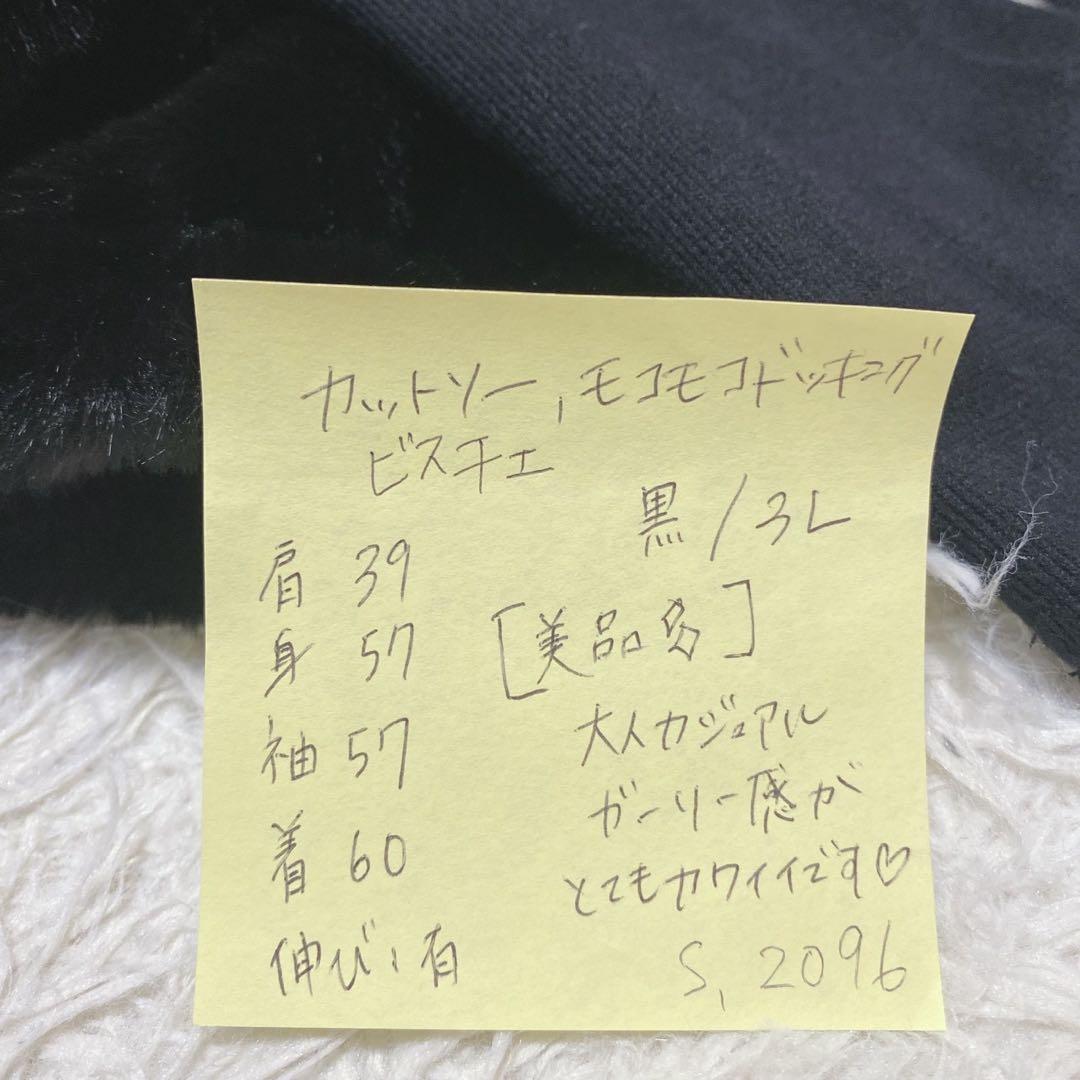 カットソー,モコモコドッキング
ビスチェ
黒/3L
肩 39
身 57
[美品多]
袖 57
大人カジュアル
着 60
ガーリー感が
とてもカワイイです♡
伸び:有
S,2096